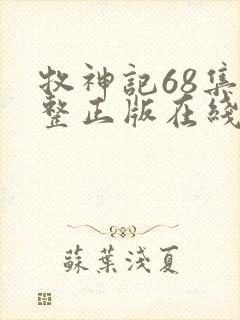 牧神記68集
整正版在綫
蘇葉淺夏